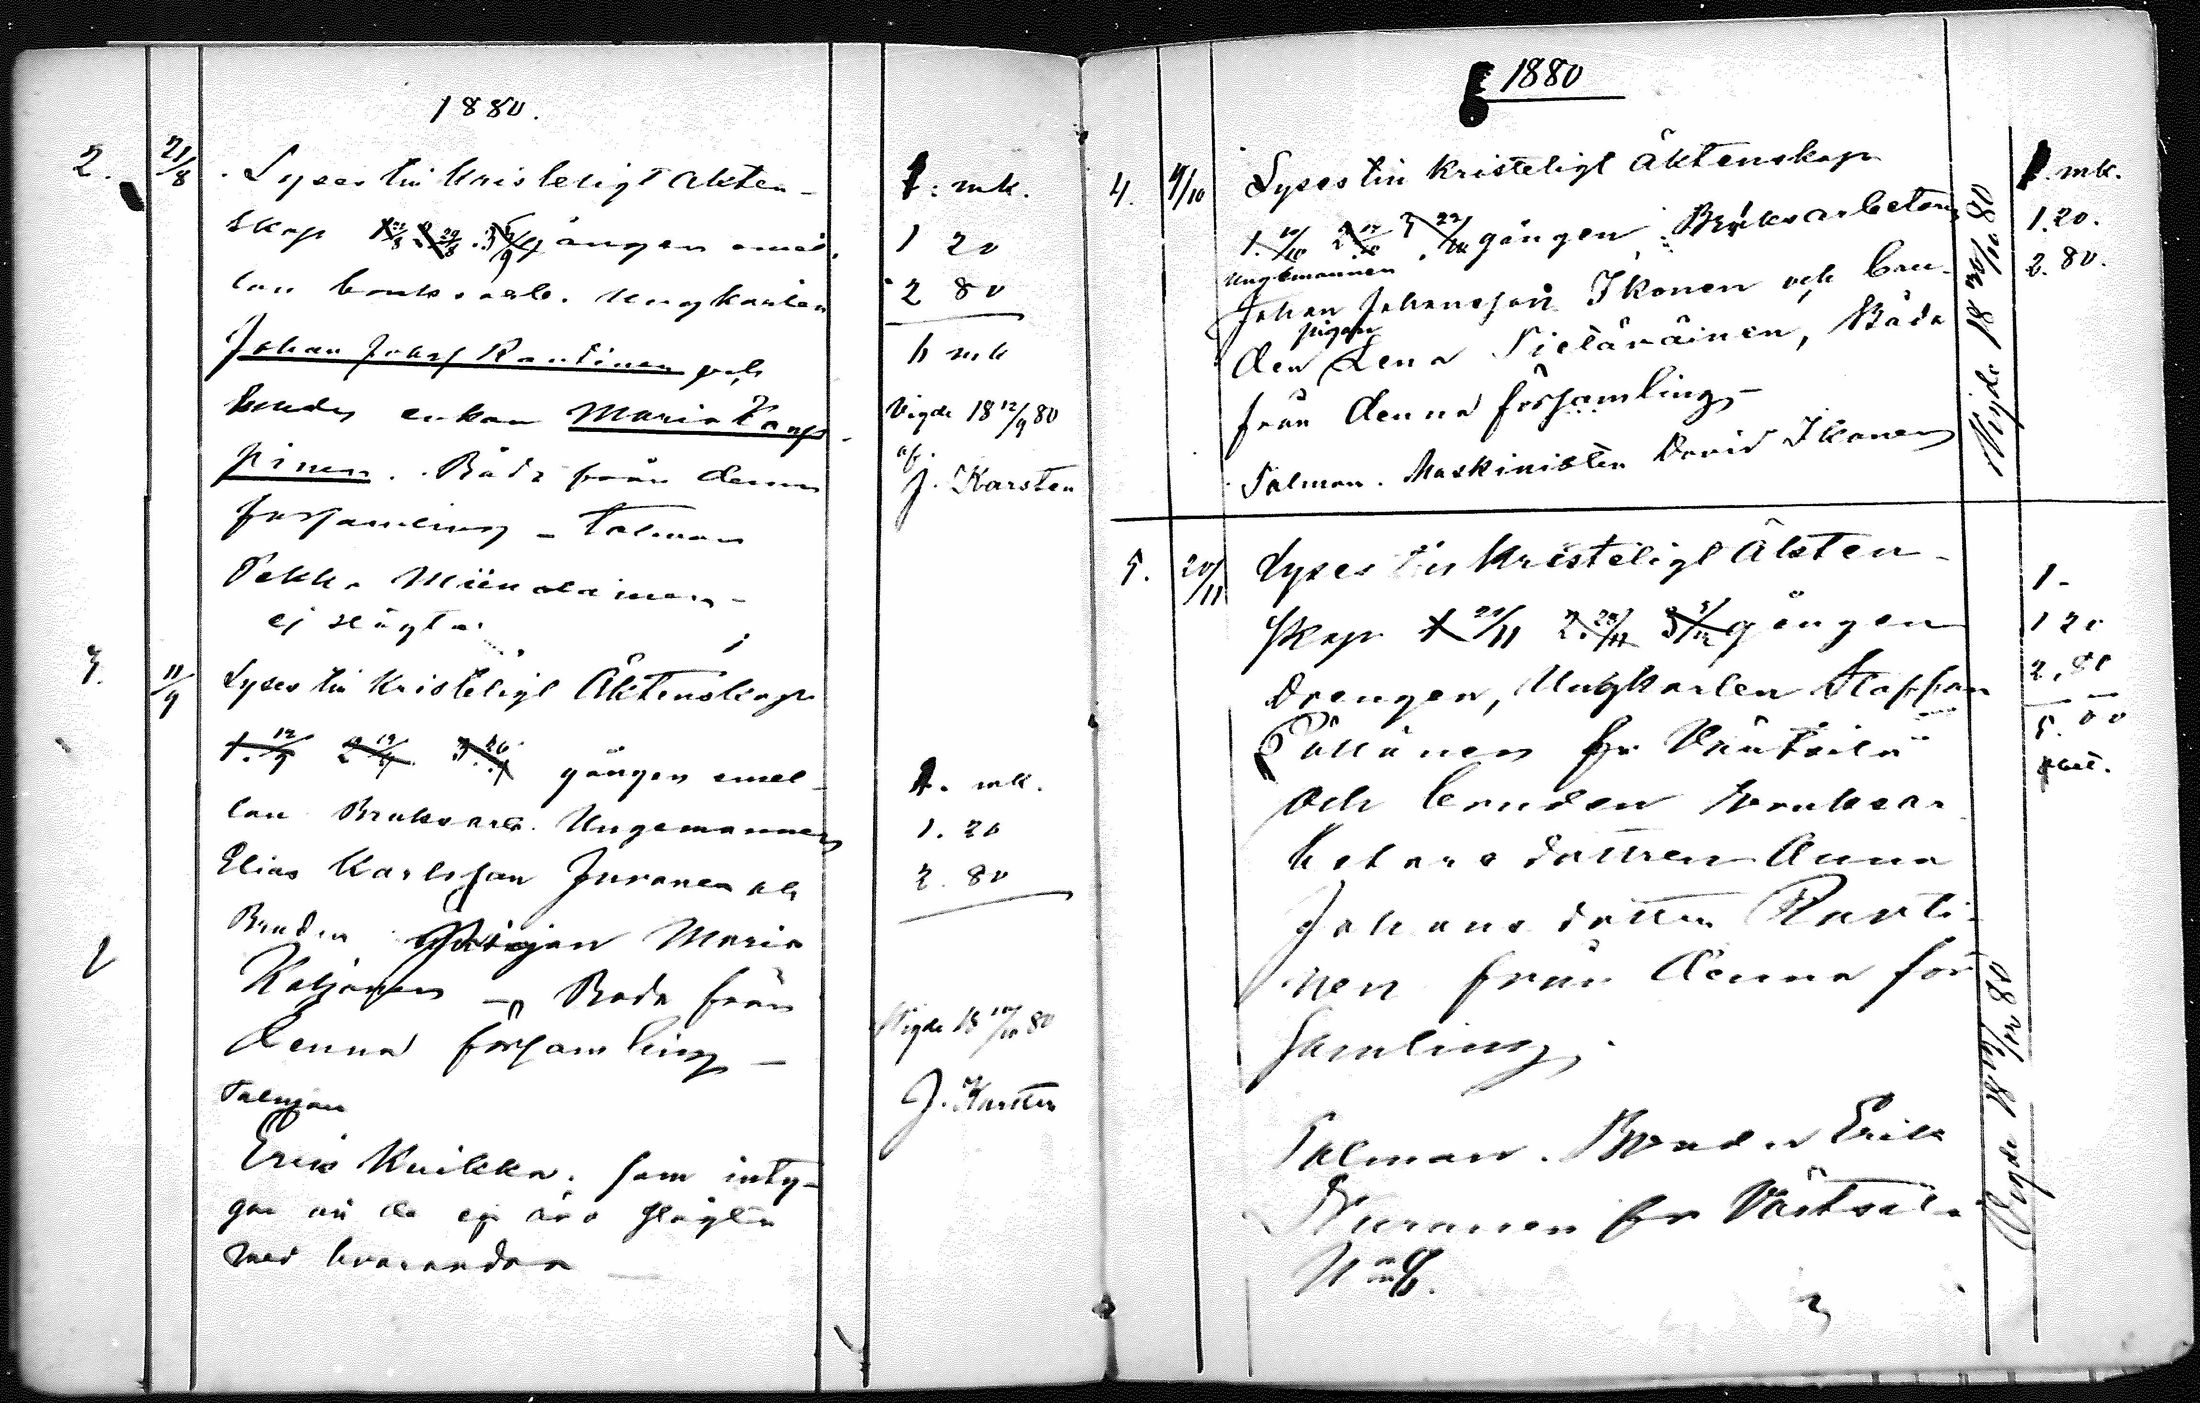 1880.
2. 21/8 Lyses till kristeligt äkten-
skap 1 22/8 2 29/8 3 5/9 gången emel-
lan bruksarb. Ungkarlen
Johan Johansf Rautinen och
bruden enkan Maria Kaup-
pinen. Båda från denna
församling – Talman
Pekka Miinalainen –
ej slägta
1. mk.
1 20
2 80
5 mk
Vigde 18 12/9 80
af.
J. Karsten
3. 11/9 Lyses till Kristeligt Äktenskap
1. 12/9 2 19/9 3. 26/9 gången emel-
lan Bruksarb. Ungemannen
Elias Karlsson Juvonen och
Bruden Pigan Maria
– Båda från
denna församling –
Talman
Erik Kuikka. som inty-
gar att de ej äro slägta
med hvarandra –
1. mk.
1. 20
2. 80
Vigde 18 10/10 80
J. Karsten
1880
4. 9/10 Lyses till kristeligt äktenskap
1. 10/10 2 17/10 3 24/10 gången Bruksarbetaren
Ungemannen
Johan Johansson Ikonen och bru-
pigan
den Lena Pietäräinen, Båda
från denna församling –
Talman. Maskinisten David Ikonen
Vigde 18 30/10 80
1. mk.
1. 20.
2. 80.
5. 20/11 Lyses till Kristeligt Äkten-
skap 1 21/11 2. 28/11 3 5/12 gången
Drengen, Ungkarlen Staffan
Pöllänen fr Värtsilä
och bruden bruksar-
betaredottren Anna
Johansdotter Rauti-
nen från denna för
samling.
Talman. Bonden Erik
Nuranen fr Värtsilä
N 8.
Vigde 18 80
1 –
1 20
2. 80
5. 00